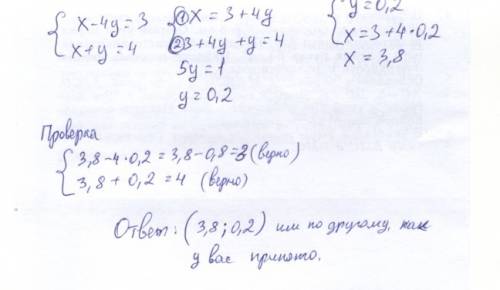 x-4y=3
x+y=4
① x = 3+4y
② 3+4y+y=4
5y=1
y=0,2
y=0,2
x=3+4·0,2
x=3,8
Проверка
3,8-4·0,2=3,8-0,8=3 (верно)
3,8+0,2=4 (верно)
Ответ: (3,8; 0,2) или по другому, как
у вас принято.